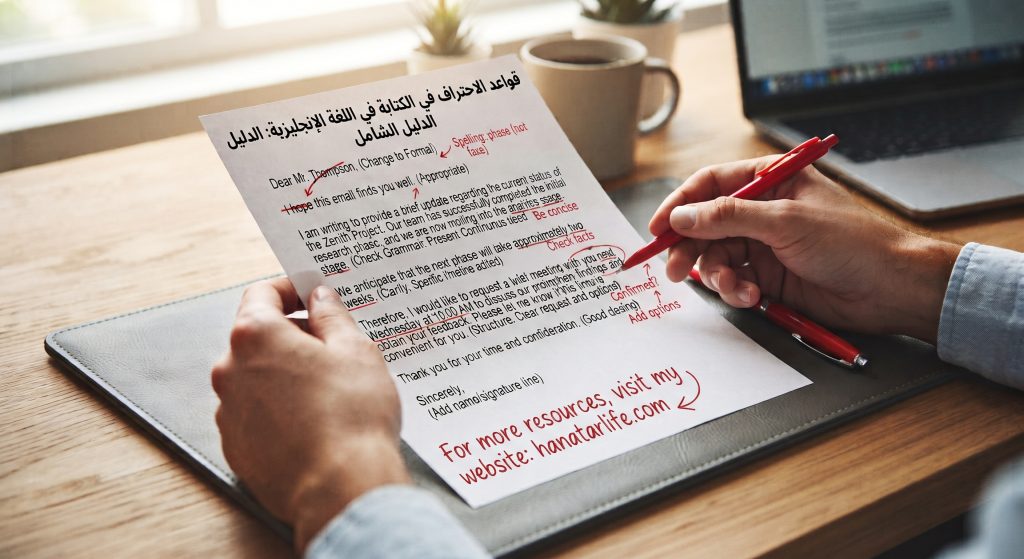 قواعد الاحتراف في الكتابة في اللغة الإنجليزية: الدليل
الدليل الشامل
Dear Mr. Thompson, (Change to Formal)
Spelling: phase (not
faxe)
I hope this email finds you well, (Appropriate)
I am writing to provide a brief update regarding the current status of
the Zenith Project. Our team has successfully completed the initial
research phasc, and we are now molling into the
stage. (Check Grammar: Present Continunus tleed
Be concise
We anticipate that the next phase will take approximately two
weeks. (Carlly, Specific
Check facts
Therefore, I would like to request a brief meeting with you next
Wednesday at 10:00 AM to discuss our findings and
obtain your feedback. Please let the know in this
convenient for you. (Structure. request and optione)
Confirmed?
Add options
Thank you for your time and confideration. (Good desing)
Sincerely,
(Add name/signature line)
For more resources, visit my
website: hanatarlife.com